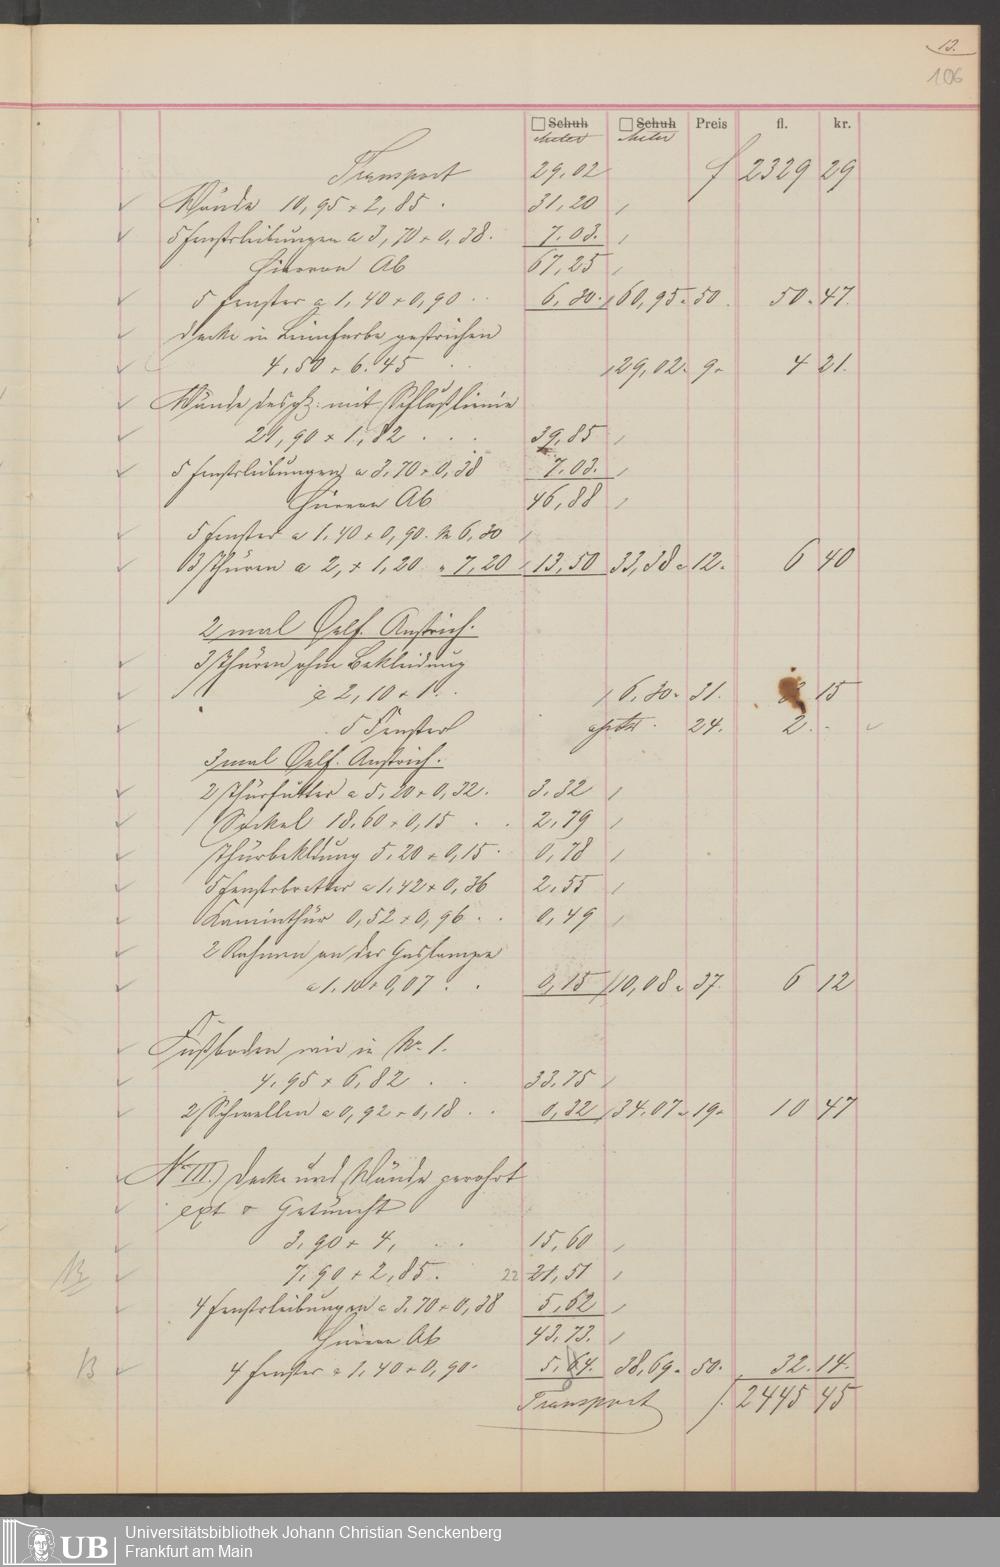 13.
106
□ Schuh □ Schuh Preis fl. kr.
Meter Meter
Transport 29,02 f 2329 29
Wände 10,95 + 2,85 . 31,20
5 Fensterleibungen a 3,70 + 0,38. 7.03.
Hiervon Ab 67,25
5 Fenster a 1,40 + 0,90 . . 6,30. 60,95 a 50. 50. 47.
Decke in Leimfarbe gestrichen
4,50 + 6.45 . . 29,02. 9. 4 21.
Wände desgl: mit Schlußlinie
21,90 + 1,82 . . . 39,85
5 Fensterleibungen a 3.70 + 0,38 7.03.
Hiervon Ab 46,88
5 Fenster a 1.40 + 0,90. 6,30
3 Thüren a 2, + 1,20 " 7,20 13,50 33,38 a 12. 6 40
2 mal Oelf. Anstrich.
3 Thüren ohne Bekleidung
a 2,10 + 1. . 6.30. 31. 3 15
5 Fenster 24. 2. -
3 mal Oelf. Anstrich.
2 Thürfutter a 5.20 + 0,32. 3.32
Sockel 18.60 + 0,15 . . 2,79
Thürbekldung 5.20 + 0,15. 0,78
5 Fensterbretter a 1,42 + 0,36 2,55
Kaminthür 0,52 + 0,96 . . 0,49
2 Rahmen an der Gaslampe
a 1.10 + 0,07 . . 0,15 10,08 a 37. 6 12
Fußboden wie in No 1.
4.95 + 6,82 . . 33.75
2 Schwellen a 0,92 + 0,18 . . 0,32 34.07 a 19. 10 47
No III.) Decke und Wände gerohrt
gept & Getüncht
3,90 + 4, . . 15,60
13 7,90 + 2,85. 22 21,51
4 Fensterleibungen a 3.70 + 0,38 5,62
Hiervon Ab 43.73.
13 4 Fenster a 1.40 + 0,90. 5,04. 38,69 a 50. 32. 14.
Transport f. 2445 45
UB
Universitätsbibliothek Johann Christian Senckenberg
Frankfurt am Main